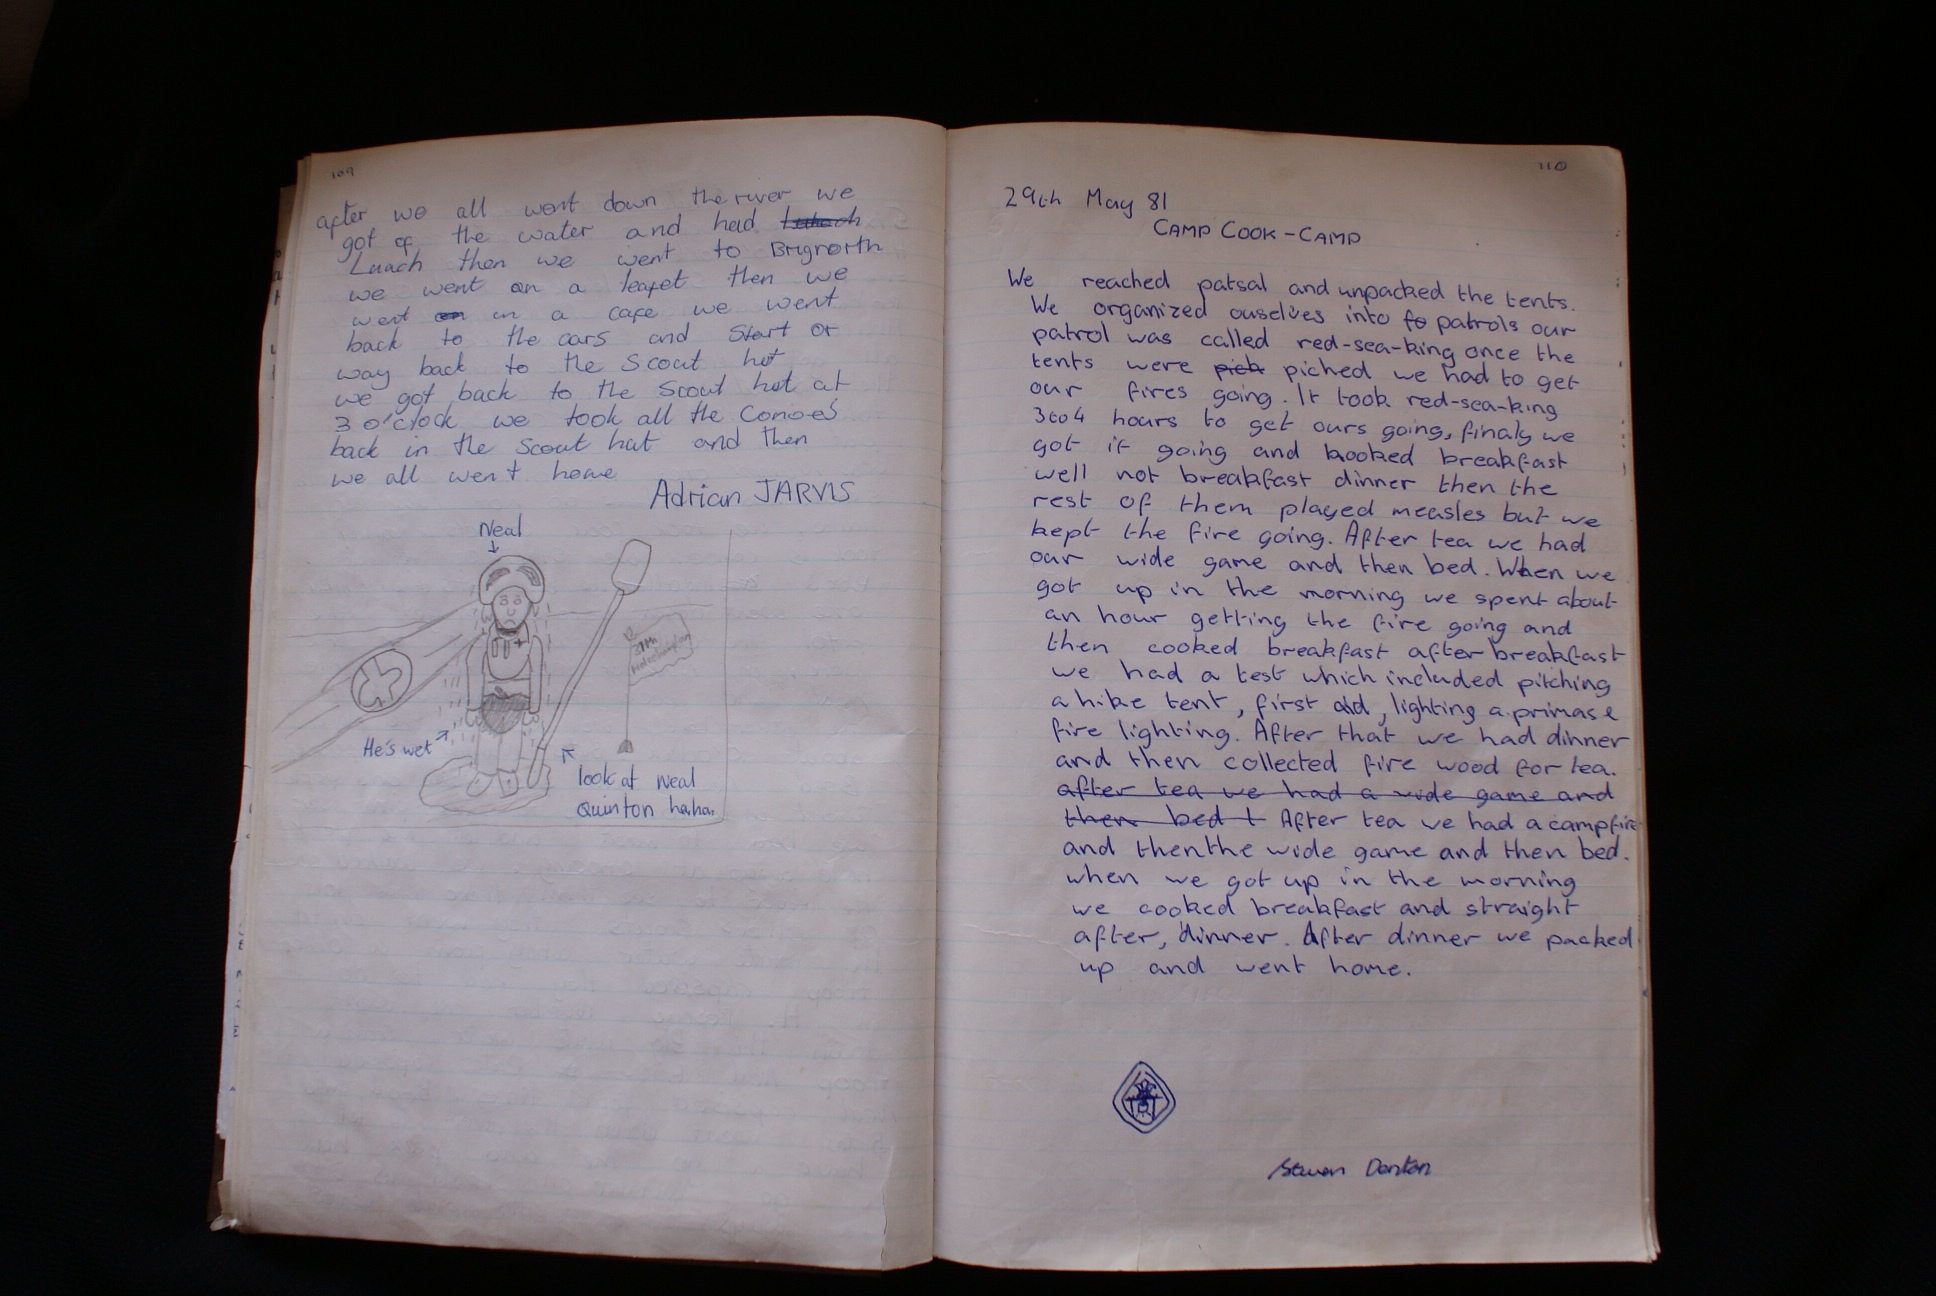 109
after we all went down the river we
got of the water and had
Lunach then we went to Brignorth
we went on a leafet then we
went in a cafe we went
back to the cars and Start or
way back to the Scout hut
we got back to the Scout hut at
3 o'clock we took all the Conoes
back in the Scout hut and then
we all went home
Adrian JARVIS
Neal
He's wet
look at Neal
Quinton haha.
110
29th May 81
CAMP COOK-CAMP
We reached patsal and unpacked the tents.
We organized ouselves into fo patrols our
patrol was called red-sea-king once the
tents were pich piched we had to get
our fires going. It took red-sea-king
3 to 4 hours to get ours going, finaly we
got it going and kooked breakfast
well not breakfast dinner then the
rest of them played measles but we
kept the fire going. After tea we had
our wide game and then bed. When we
got up in the morning we spent about
an hour getting the fire going and
then cooked breakfast after breakfast
we had a test which included pitching
a hike tent, first aid, lighting a primase
fire lighting. After that we had dinner
and then collected fire wood for tea.
after tea we had a wide game and
then bed t After tea we had a campfire
and then the wide game and then bed.
when we got up in the morning
we cooked breakfast and straight
after, dinner. After dinner we packed
up and went home.
Steven Denton